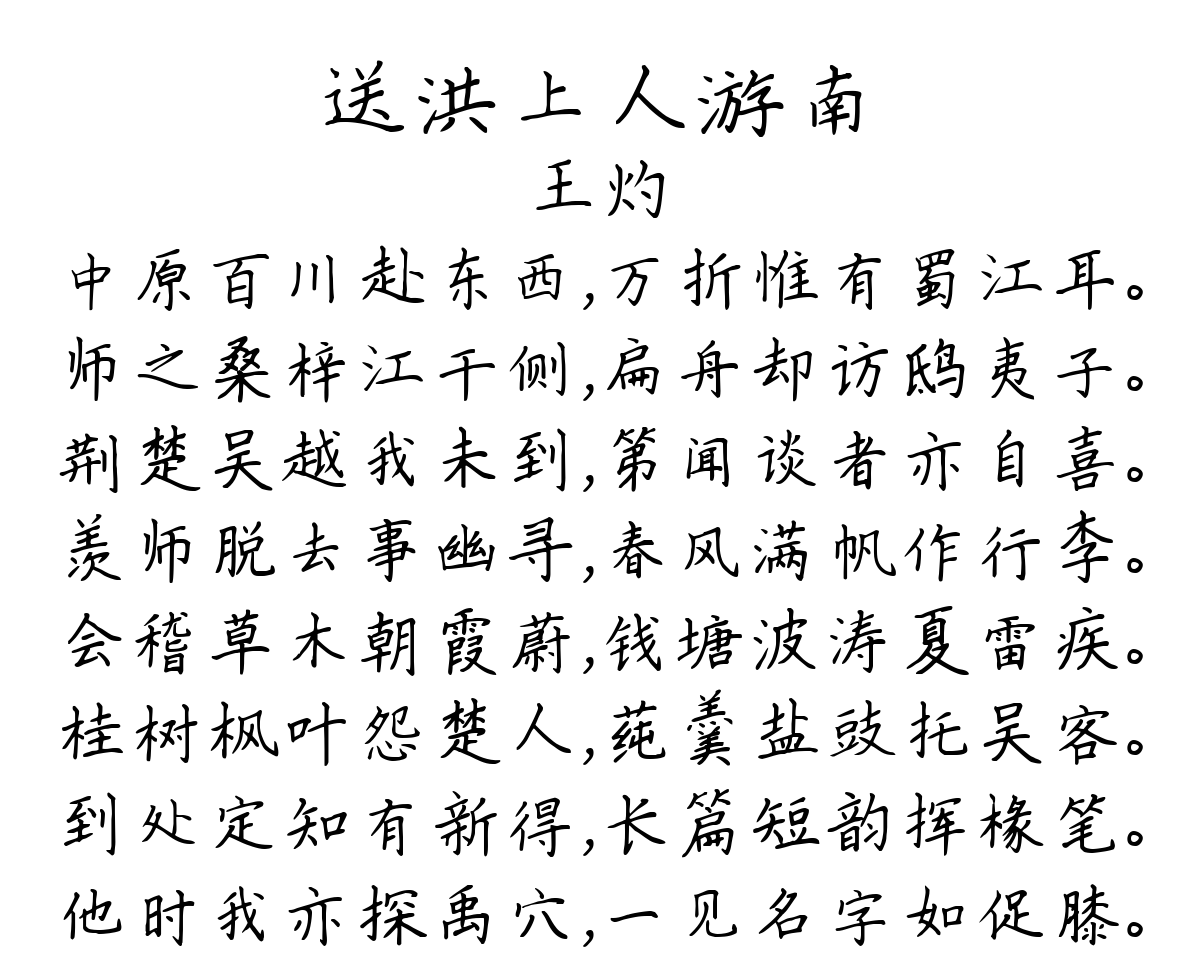 送洪上人游南
王灼
中原百川赴东西,万折惟有蜀江耳。
师之桑梓江干侧,扁舟却访鸱夷子。
荆楚吴越我未到,第闻谈者亦自喜。
羡师脱去事幽寻,春风满帆作行李。
会稽草木朝霞蔚,钱塘波涛夏雷疾。
桂树枫叶怨楚人,莼羹盐豉托吴客。
到处定知有新得,长篇短韵挥椽笔。
他时我亦探禹穴,一见名字如促膝。